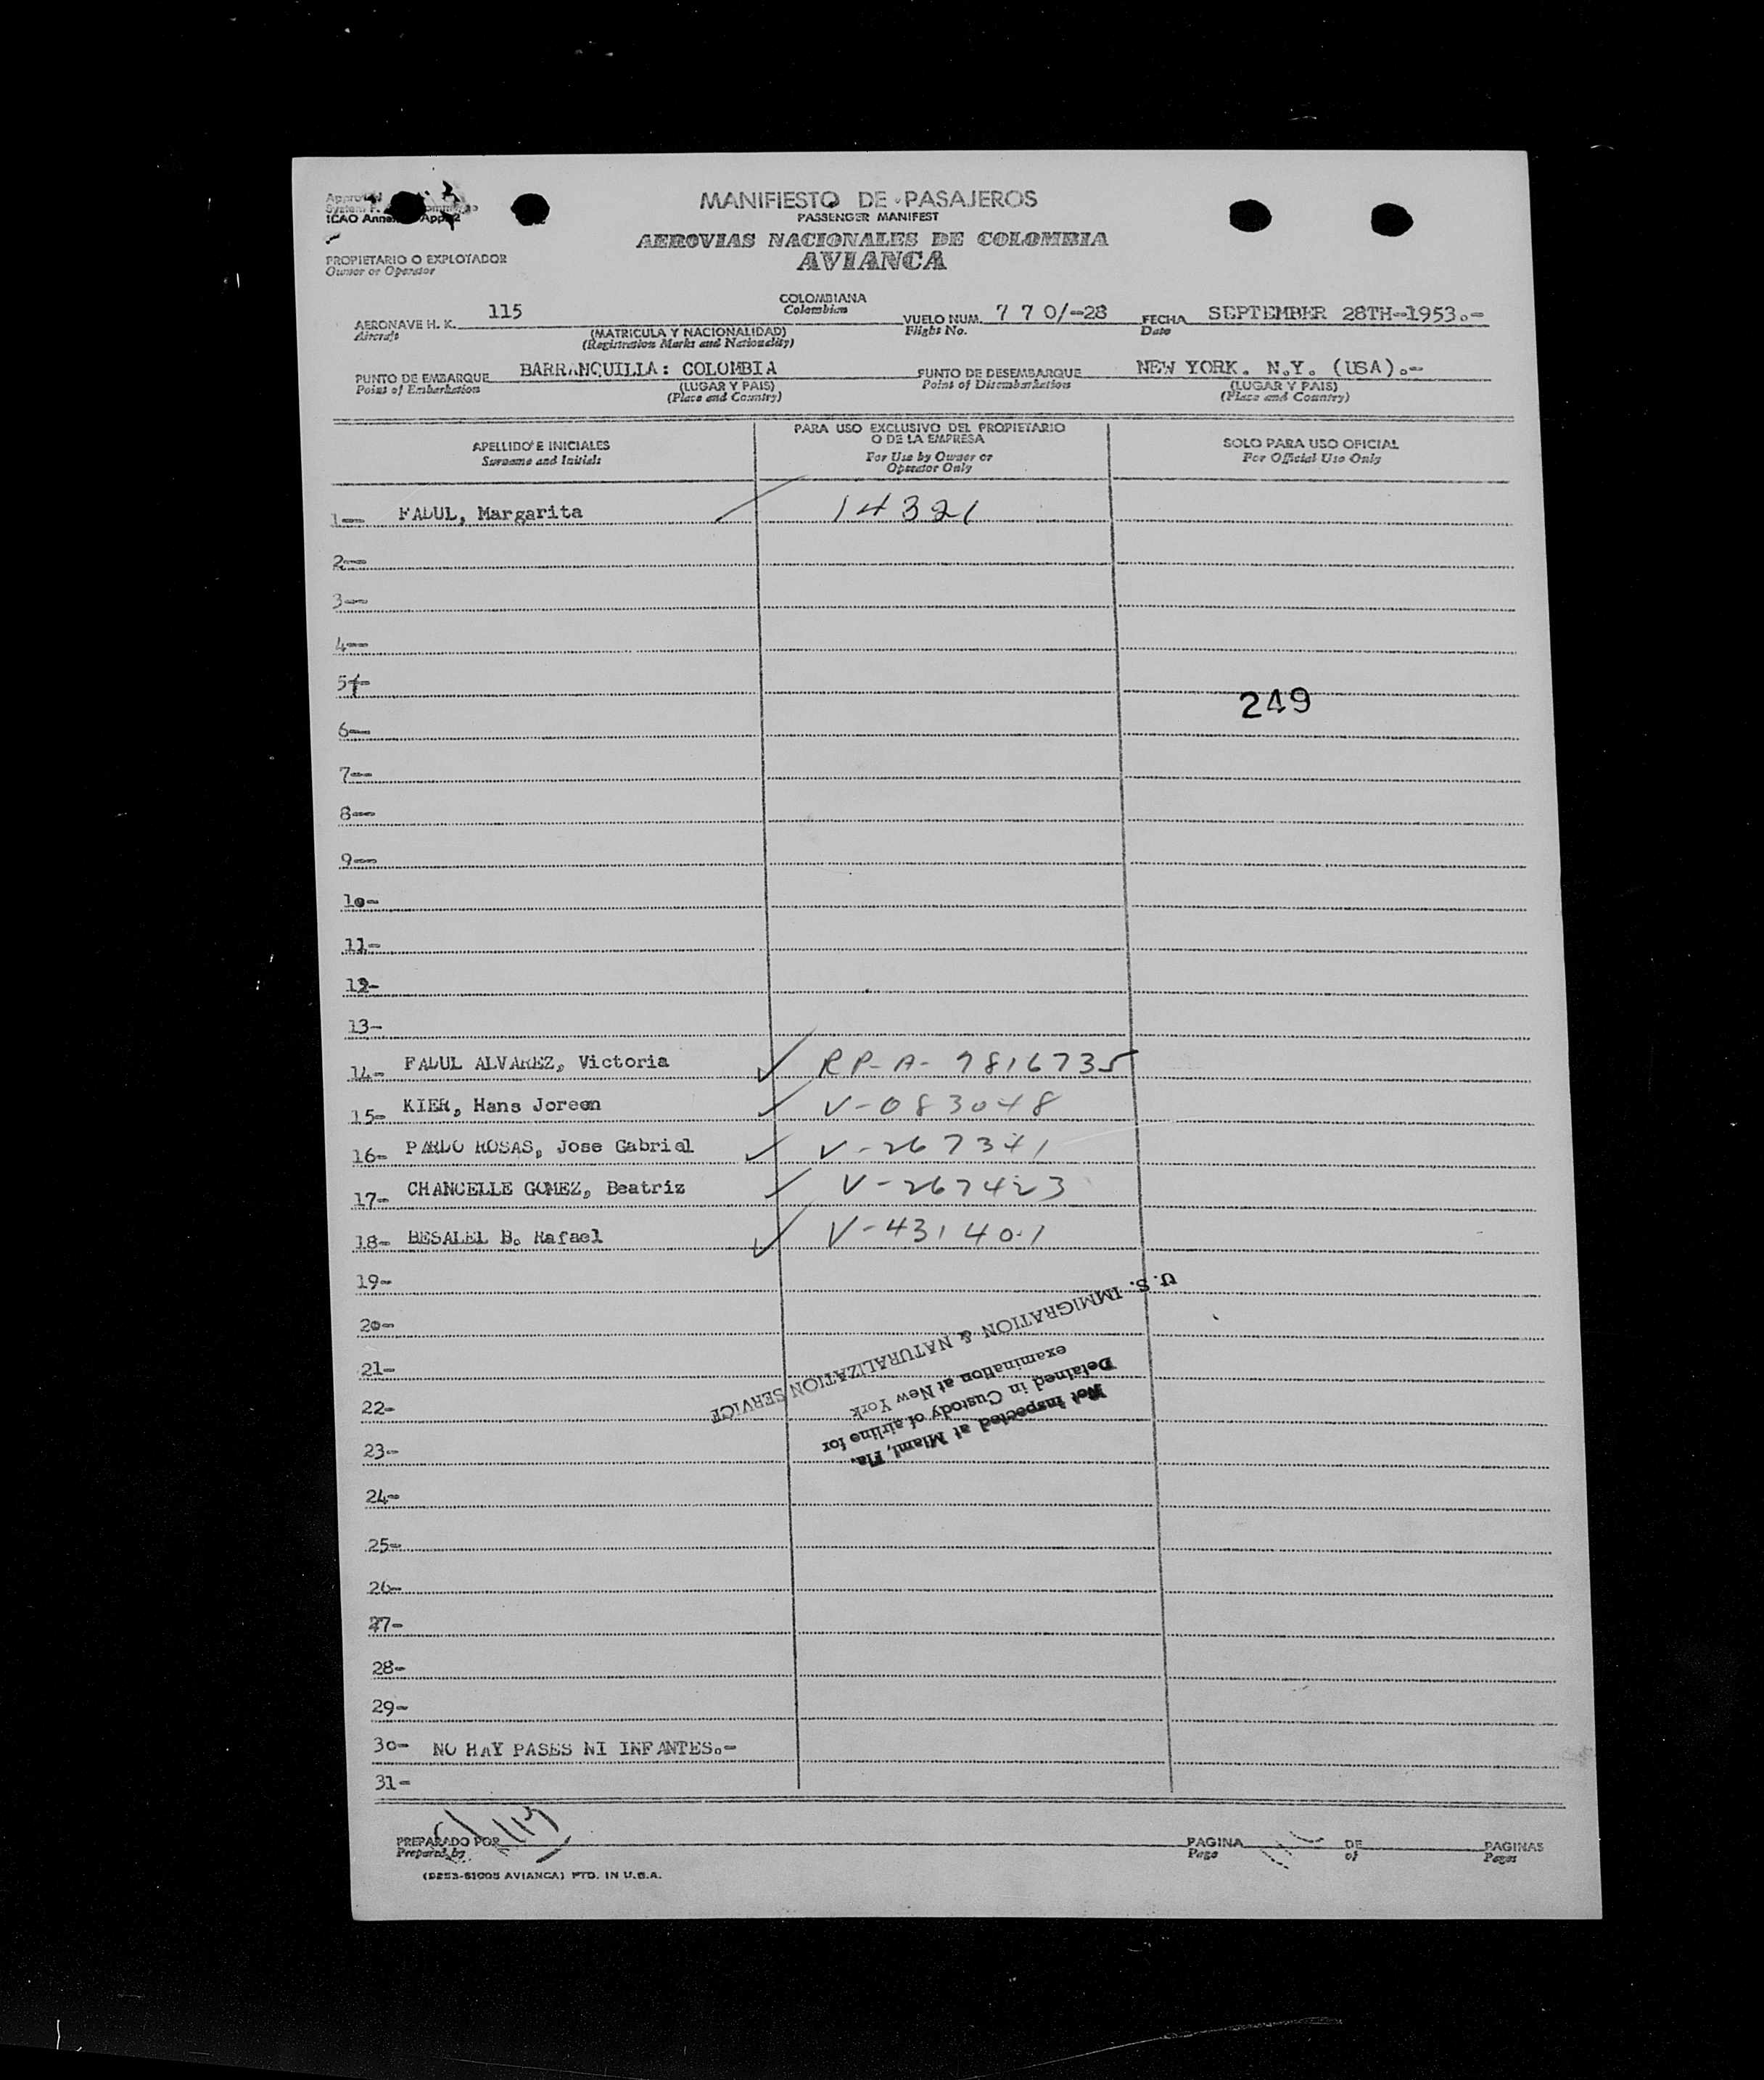 Approved
ICAO Annex App 2
MANIFIESTO DE PASAJEROS
PASSENGER MANIFEST
AEROVIAS NACIONALES DE COLOMBIA
AVIANCA
PROPIETARIO O EXPLOTADOR
Owner or Operator
AERONAVE H. K. 115 COLOMBIANA VUELO NUM. 7 7 0/-28 FECHA SEPTEMBER 28TH-1953.-
Aircraft (MATRICULA Y NACIONALIDAD) Colombian Flight No. Date
(Registration Marks and Nationality)
PUNTO DE EMBARQUE BARRANQUILLA: COLOMBIA PUNTO DE DESEMBARQUE NEW YORK. N.Y. (USA).-
Point of Embarkation (LUGAR Y PAIS) Point of Disembarkation (LUGAR Y PAIS)
(Place and Country) (Place and Country)
APELLIDO E INICIALES PARA USO EXCLUSIVO DEL PROPIETARIO O DE LA EMPRESA SOLO PARA USO OFICIAL
Surname and Initials For Use by Owner or Operator Only For Official Use Only
1-- FADUL, Margarita 14321
2--
3--
4--
5--
249
6--
7--
8--
9--
10-
11-
12-
13-
14- FADUL ALVAREZ, Victoria RP-A-9816735
15- KIER, Hans Joreen V-083048
16- PARDO ROSAS, Jose Gabriel V-267341
17- CHANCELLE GOMEZ, Beatriz V-267423
18- BESALEL B. Rafael V-431401
19-
20-
21-
22-
23-
Not Inspected at Miami, Fla.
Detained in Custody of airline for
examination at New York
U.S. IMMIGRATION & NATURALIZATION SERVICE
24-
25-
26-
27-
28-
29-
30- NO HAY PASES NI INFANTES.-
31-
PREPARADO POR PAGINA DE PAGINAS
Prepared by Page of Pages
(D253-61005 AVIANCA) PTD. IN U.S.A.